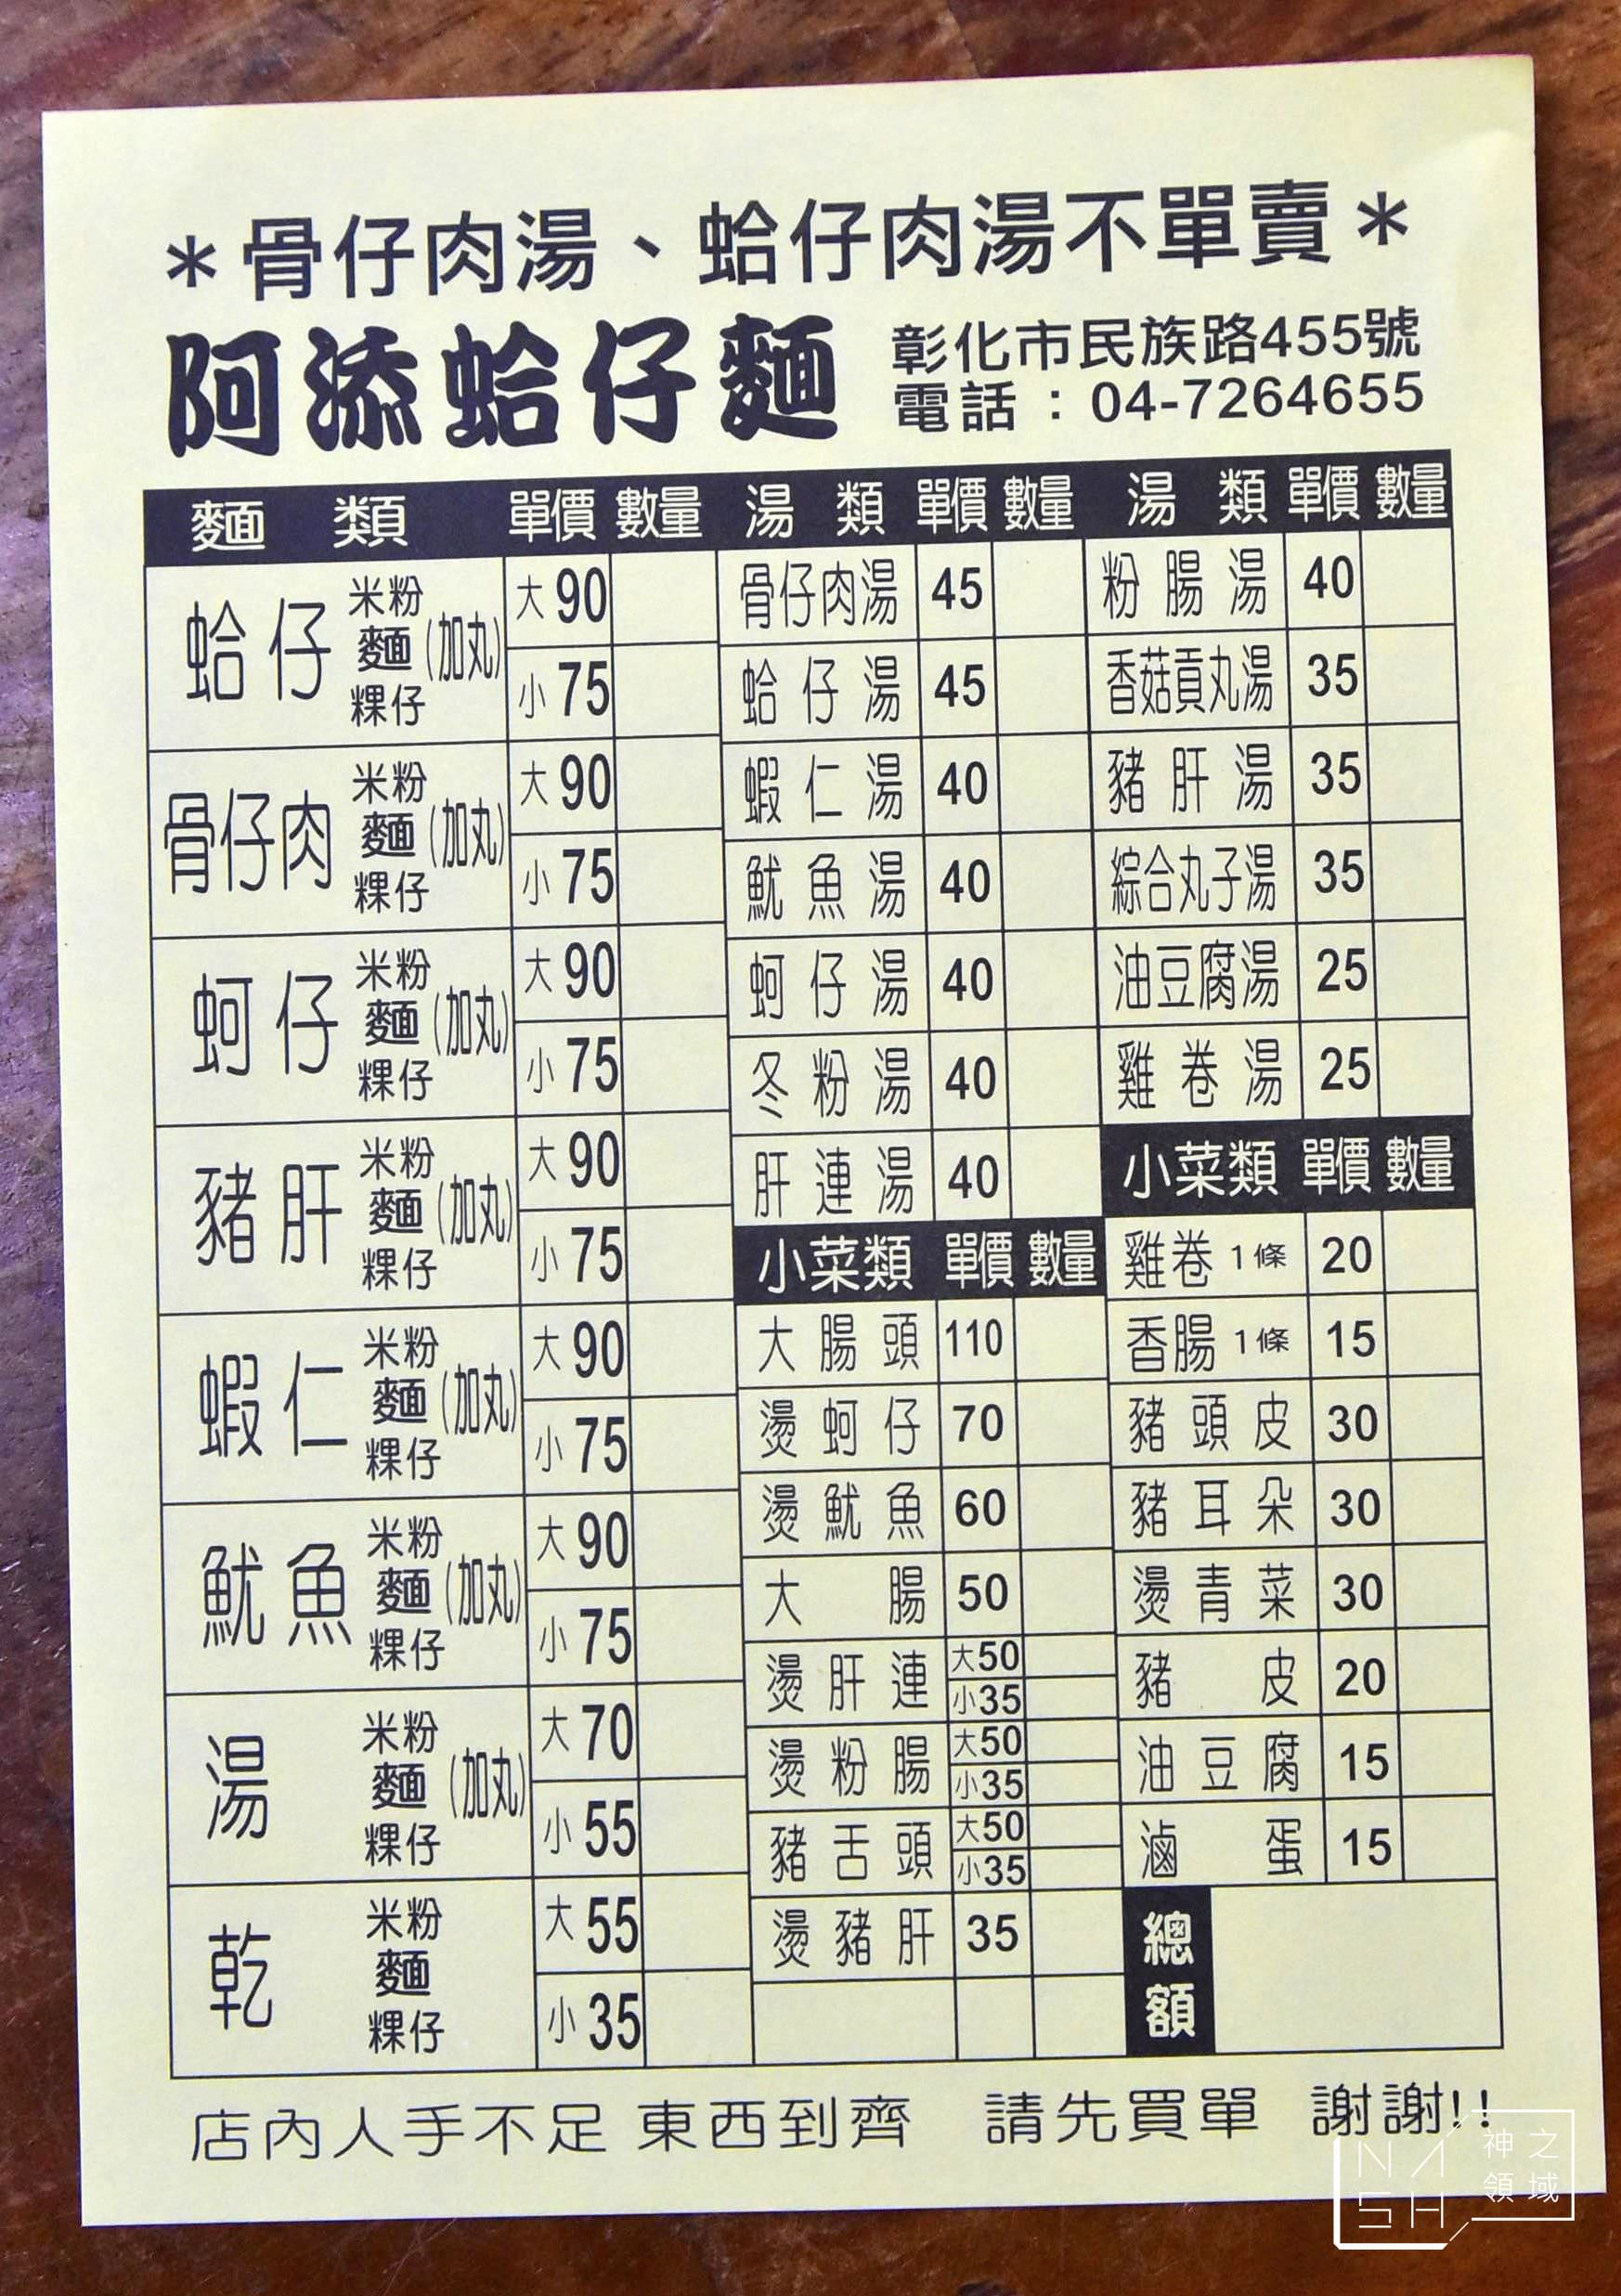 ＊骨仔肉湯、蛤仔肉湯不單賣＊
阿添蛤仔麵
彰化市民族路455號
電話：04-7264655
麵類 單價 數量
蛤仔 米粉 麵 粿仔 (加丸) 大90 小75
骨仔肉 米粉 麵 粿仔 (加丸) 大90 小75
蚵仔 米粉 麵 粿仔 (加丸) 大90 小75
豬肝 米粉 麵 粿仔 (加丸) 大90 小75
蝦仁 米粉 麵 粿仔 (加丸) 大90 小75
魷魚 米粉 麵 粿仔 (加丸) 大90 小75
湯 米粉 麵 粿仔 (加丸) 大70 小55
乾 米粉 麵 粿仔 大55 小35
湯類 單價 數量
骨仔肉湯 45
蛤仔湯 45
蝦仁湯 40
魷魚湯 40
蚵仔湯 40
冬粉湯 40
肝連湯 40
小菜類 單價 數量
大腸頭 110
燙蚵仔 70
燙魷魚 60
大腸 50
燙肝連 大50 小35
燙粉腸 大50 小35
豬舌頭 大50 小35
燙豬肝 35
湯類 單價 數量
粉腸湯 40
香菇貢丸湯 35
豬肝湯 35
綜合丸子湯 35
油豆腐湯 25
雞卷湯 25
小菜類 單價 數量
雞卷 1條 20
香腸 1條 15
豬頭皮 30
豬耳朵 30
燙青菜 30
豬皮 20
油豆腐 15
滷蛋 15
總額
店內人手不足 東西到齊 請先買單 謝謝!!
NASH 神之領域